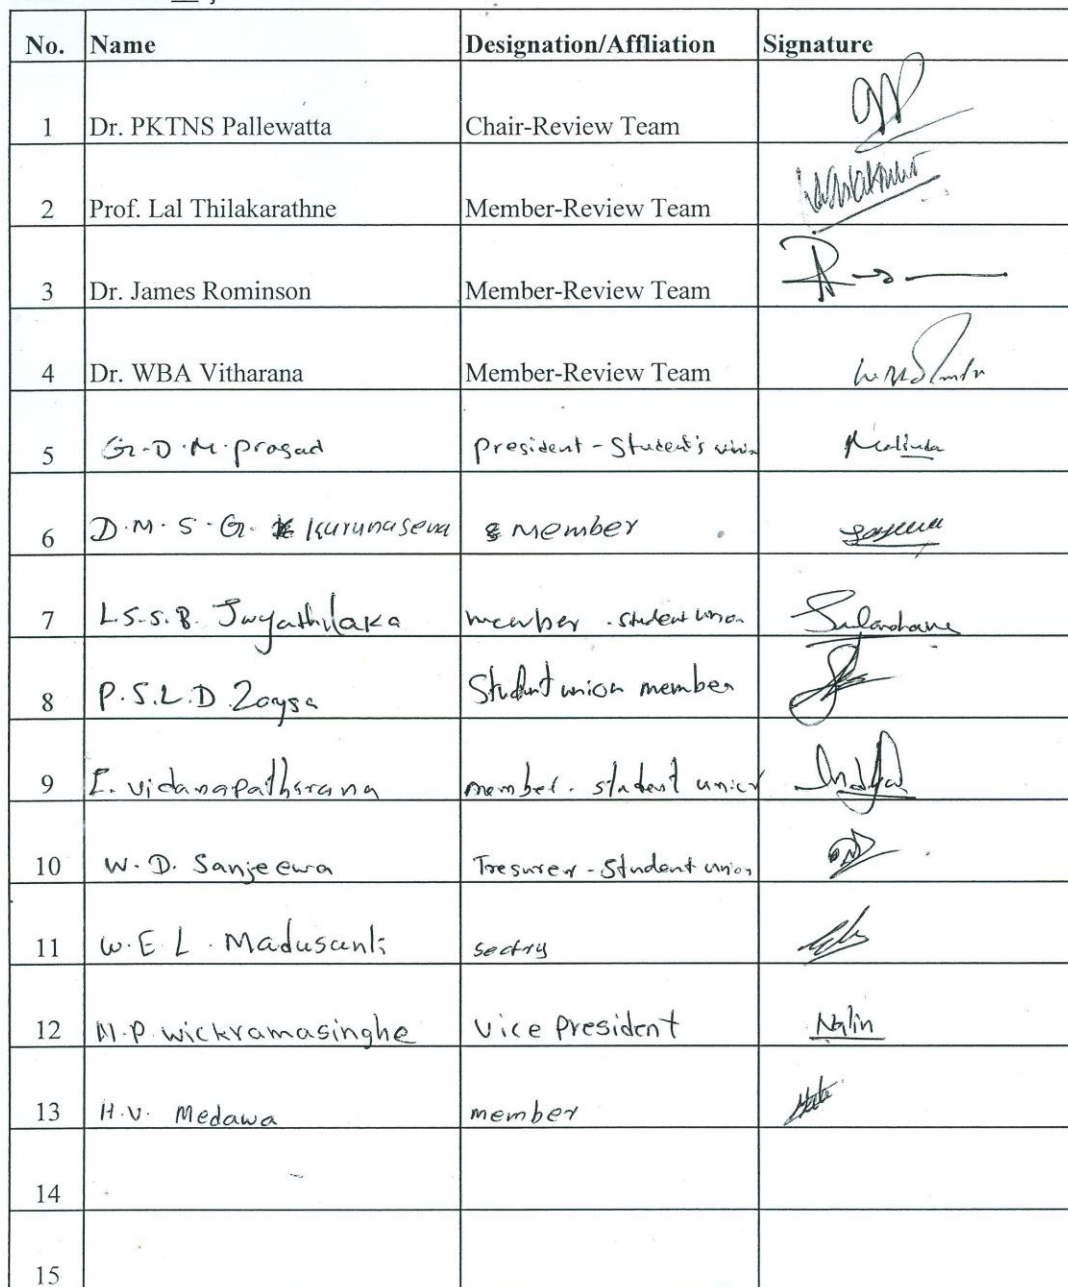 No. Name Designation/Affliation Signature
1 Dr. PKTNS Pallewatta Chair-Review Team
2 Prof. Lal Thilakarathne Member-Review Team
3 Dr. James Rominson Member-Review Team
4 Dr. WBA Vitharana Member-Review Team
5 G.D.M.prasad president - Student's Malinda
6 D.M.S.G. Karunasena Member
7 L.S.S.B. Jayathilaka member . student union
8 P.S.L.D Zoysa Student union member
9 I. vidanapathirana member. student union
10 W.D. Sanjeewa Tresurer - Student union
11 W.E.L. Madusanki sectry
12 M.P. wickramasinghe vice president Nalin
13 H.V. Medawa member
14
15